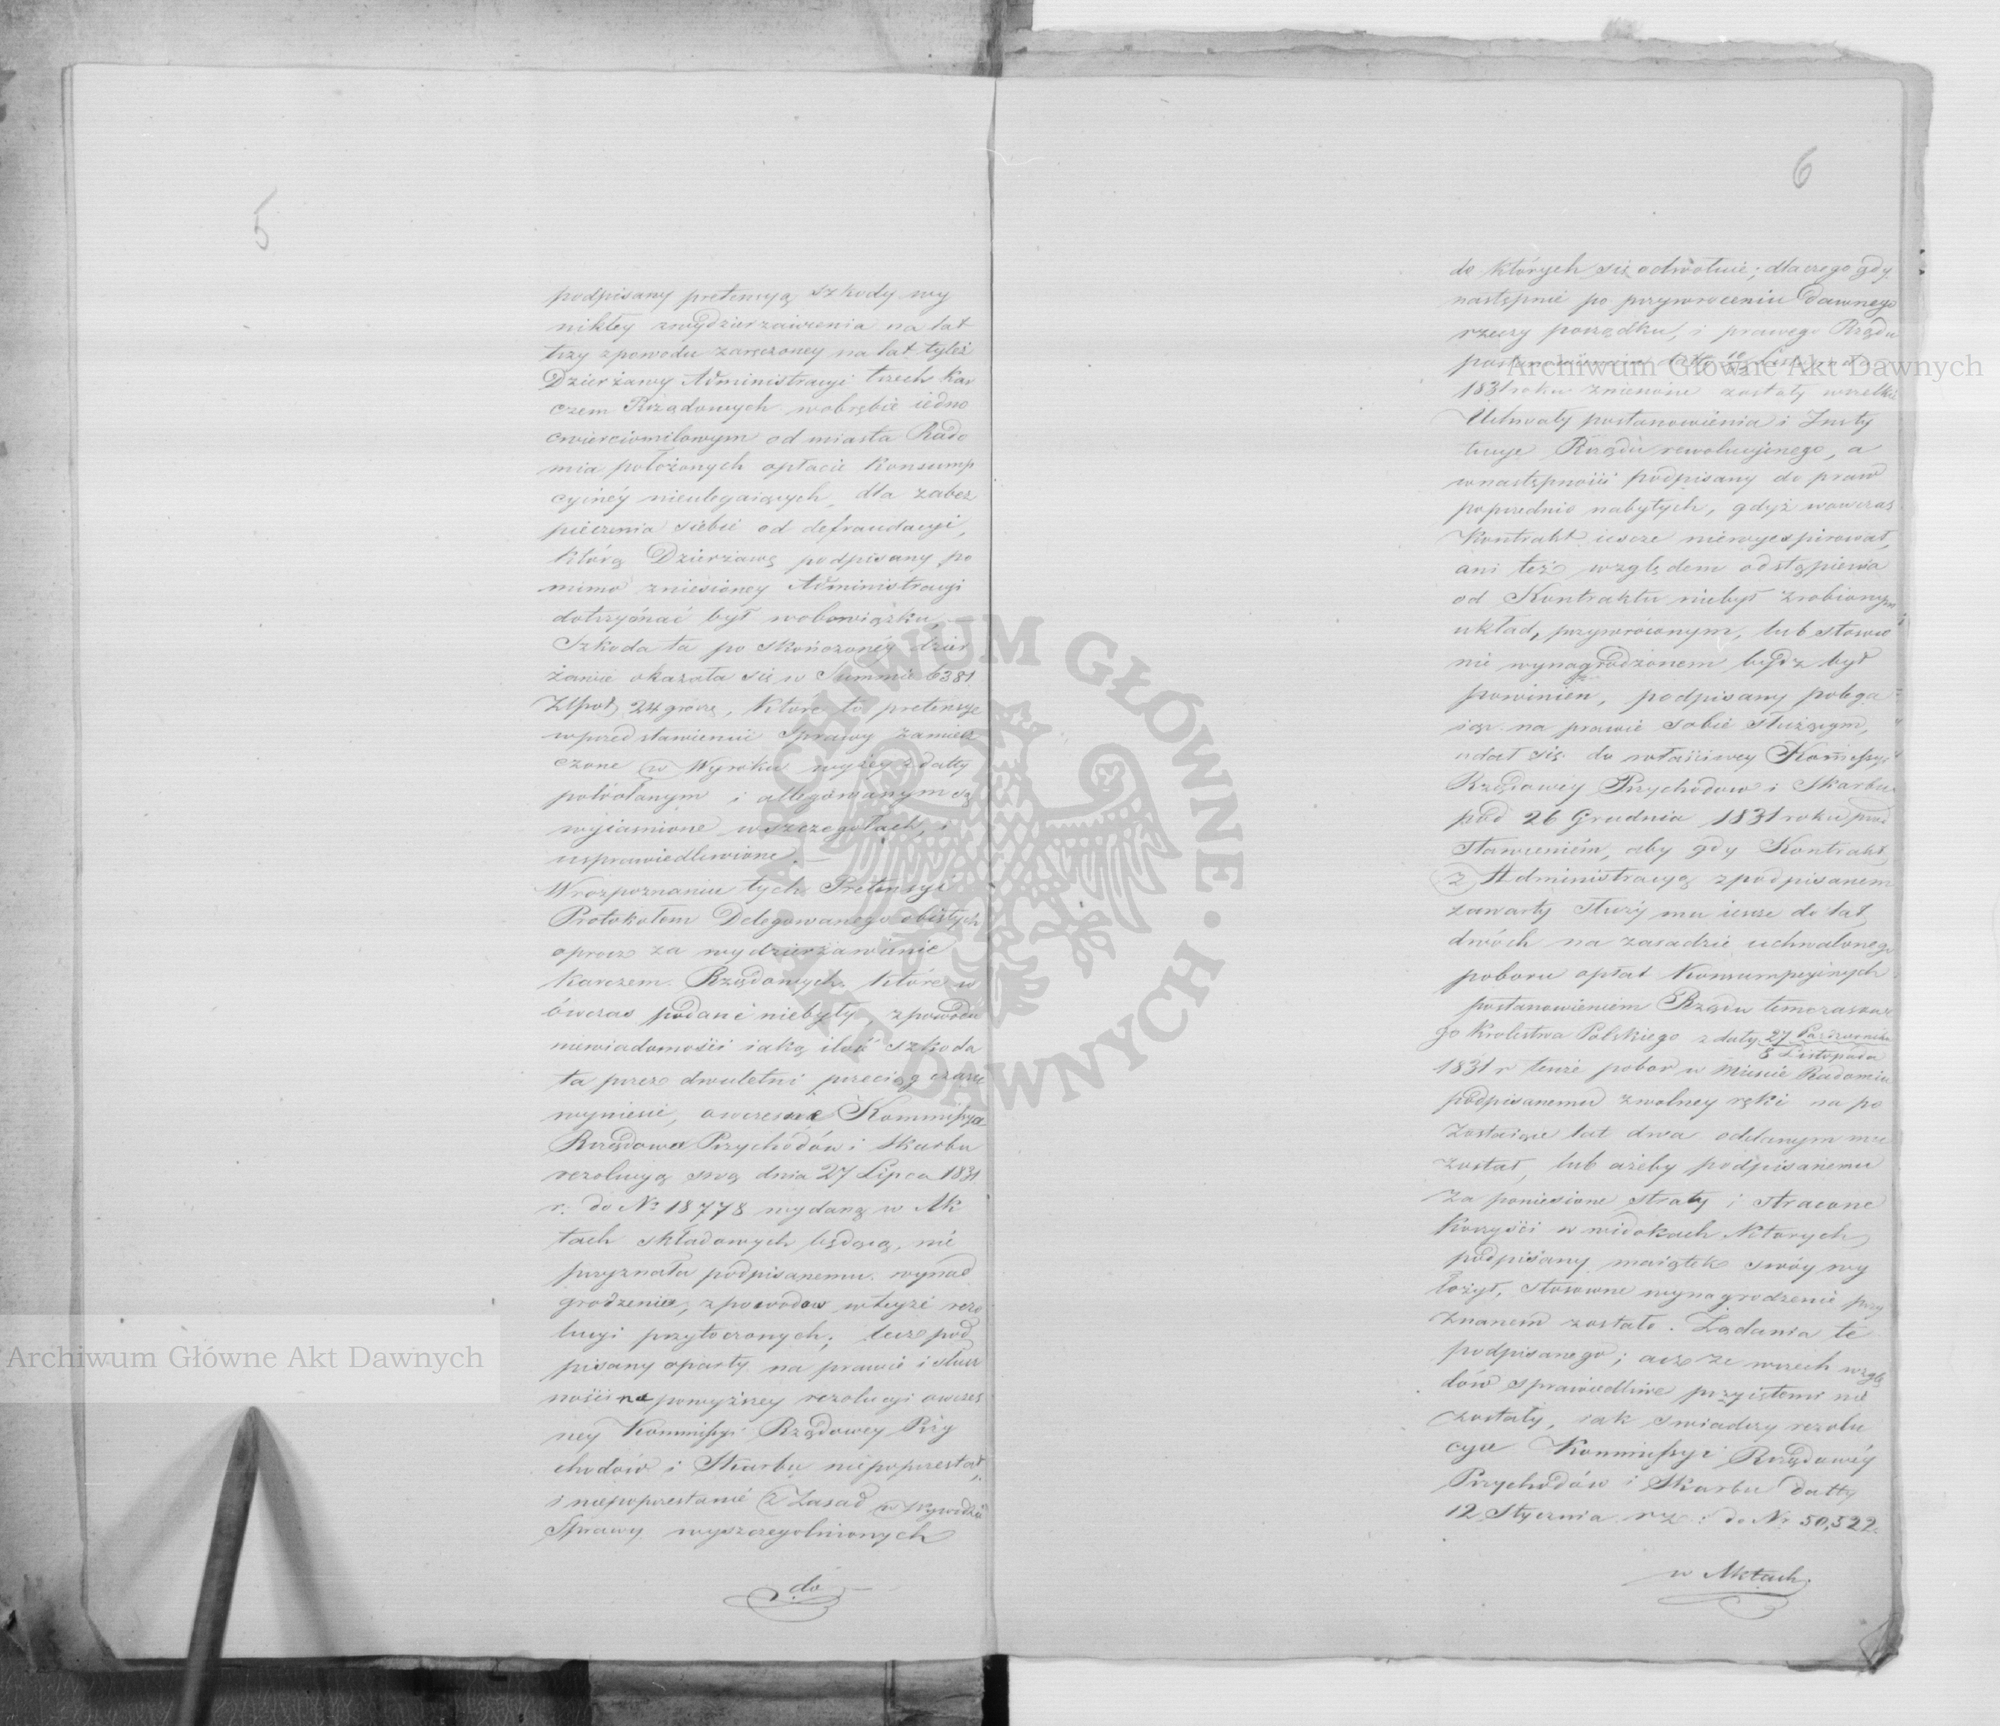 5
podpisany pretensyą szkody wy
nikłey zwydzierzawienia na lat
trzy zpowodu zaręczoney na lat tyleż
Dzierżawy Administracyi trzech Kar
czem Rządowych wobrębie iedno
cwierciomilowym od miasta Rado
mia położonych opłacie Konsump
cyinéy nieulegaiących, dla zabez
pieczenia siebie od defraudacyi,
którą Dzierżawę podpisany po
mimo zniesioney Administracyi
dotrzymać był wobowiązku,
Szkoda ta po skończonéy dzier
żawie okazała się w Summie 6381
Złpol 24 groszy, które to pretensye
wprzedstawieniu Sprawy zamiesz
czone w Wyroku wyżey z datty
powołanym i allegowanym są
wyiasnione wszczegułach, i
usprawiedliwione.
Wrozpoznaniu tych Pretensyi
Protokołem Delegowanego obiętych
oprocz za wydzierżawienie
karczem Rządowych które w
ówczas podane niebyły, zpowodu
niewiadomości iaką ilość szkoda
ta przez dwuletni przeciąg czasu
wyniesie, owczesna Kommissya
Rządowa Przychodów i Skarbu
rezolucyą swą dnia 27 Lipca 1831
r. do No 18778 wydaną w Ak
tach składowych będącą, nie
przyznała podpisanemu wynad
grodzenia, zpowodow wteyże rezo
lucyi przytoczonych; lecz pod
pisany oparty na prawie i słusz
ności na powyższey rezolucyi owczes
ney Kommissyi Rządowey Przy
chodów i Skarbu niepoprzestał,
i niepoprzestanie z Zasad w Wywodzie
Sprawy wyszczegolnionych
do
6
do których się odwołuie; dlaczego gdy
następnie po przywroceniu Dawnego
rzeczy porządku, i prawego Rządu
1831 roku zniesione zostały wszelkie
Uchwały postanowienia i Insty
tucye Rządu rewolucyinego, a
wnastępności podpisany do praw
poprzednio nabytych, gdyż wowczas
Kontrakt ieszcze niewyexpirował,
ani też względem odstąpienia
od Kontraktu niebył zrobionym
układ, przywróconym, lub stosow
nie wynagrodzonem bydz był
powinien, podpisany polega
iąc na prawie sobie służącym,
udał się do właściwey Kommissyi
Rządowey Przychodow i Skarbu
pod 26 Grudnia 1831 roku przed
stawieniém, aby gdy Kontrakt
z Administracyą zpodpisanem
zawarty służy mu ieszcze do lat
dwóch na zasadzie uchwalonego
poboru opłat Konsumpcyinych
postanowieniem Rządu temczasowe
go Krolestwa Polskiego z daty 27 Pazdziernika
8 Listopada
1831 r tenże pobor w Mieście Radomiu
podpisanemu zwolney ręki na po
zostaiące lat dwa oddanym mu
został, lub ażeby podpisanemu
za poniesione straty i stracone
Korzyści w widokach których
podpisany maiątek swóy wy
łożył, stosowne wynagrodzenie przy
znanem zostało. Żądania te
podpisanego; acz ze wszech wzglę
dów sprawiedliwe przyiętemi nie
zostały, iak swiadczy rezolu
cya Kommissyi Rządowéy
Przychodów i Skarbu datty
12 Stycznia rz: do No 50,522
w Aktach
Archiwum Główne Akt Dawnych
Archiwum Główne Akt Dawnych
ARCHIWUM GŁÓWNE · AKT DAWNYCH ·